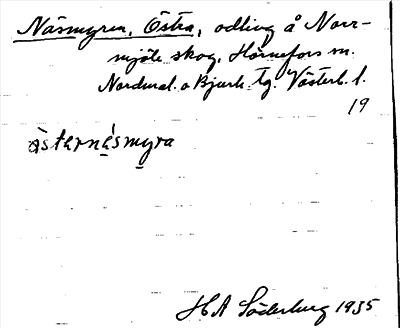 Näsmyren, Östra, odling å Norr-
mjöle skog, Hörnefors sn.
Nordmal. o Bjurh. tg. Västerb. l.
19
àsternä́smyra
H A Söderberg 1935